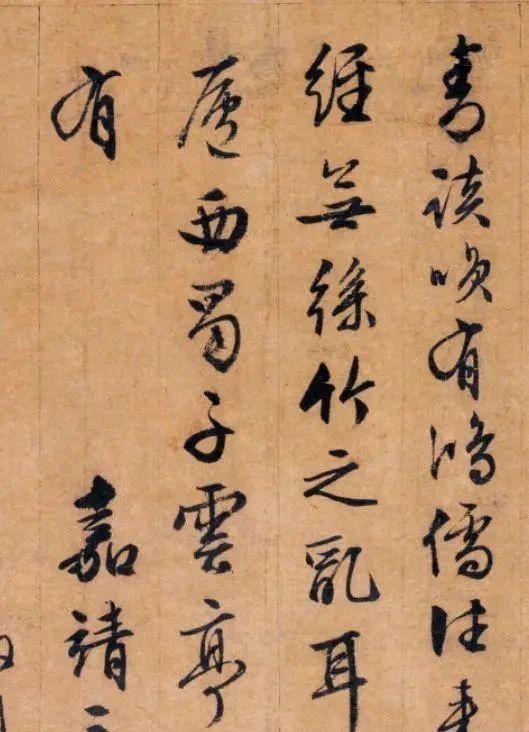 青談咲有鴻儒往來
經無絲竹之亂耳
廬西蜀子雲亭
有 嘉靖